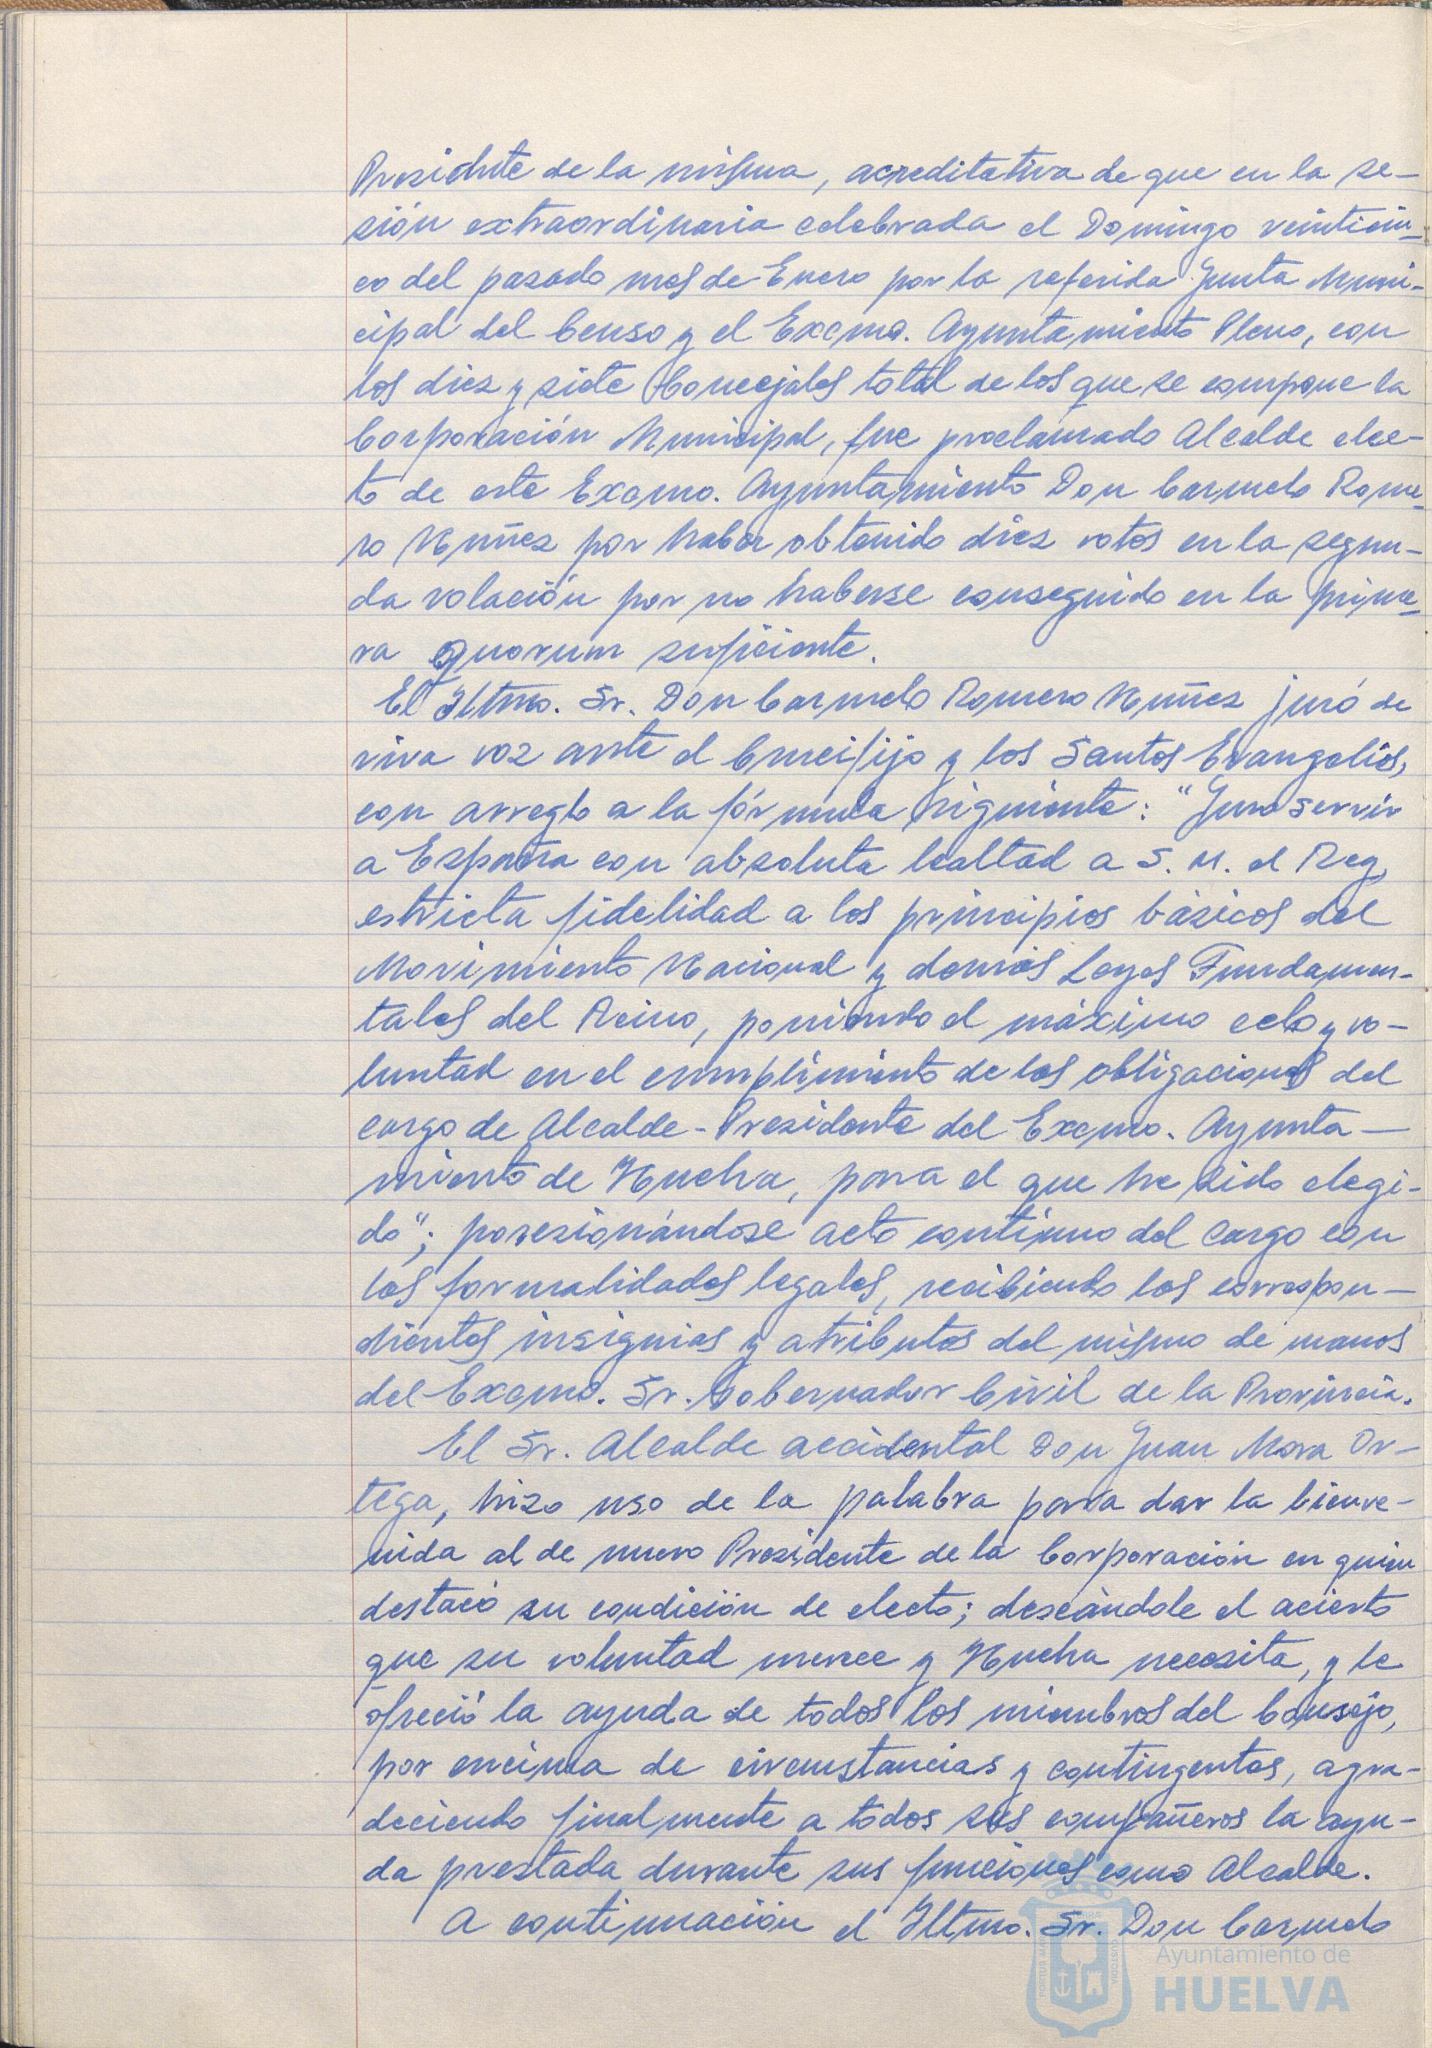 Presidente de la misma, acreditativa de que en la se-
sión extraordinaria celebrada el Domingo veinticin-
co del pasado mes de Enero por la referida Junta Muni-
cipal del Censo y el Excmo. Ayuntamiento Pleno, con
los diez y siete Concejales total de los que se compone la
Corporación Municipal, fue proclamado Alcalde elec-
to de este Excmo. Ayuntamiento Don Carmelo Rome-
ro Núñez por haber obtenido diez votos en la segun-
da votación por no haberse conseguido en la prime-
ra quorum suficiente.
El Iltmo. Sr. Don Carmelo Romero Núñez juró de
viva voz ante el Crucifijo y los Santos Evangelios,
con arreglo a la fórmula siguiente: "Juro servir
a España con absoluta lealtad a S. M. el Rey,
estricta fidelidad a los principios básicos del
Movimiento Nacional y demás Leyes Fundamen-
tales del Reino, poniendo el máximo celo y vo-
luntad en el cumplimiento de las obligaciones del
cargo de Alcalde-Presidente del Excmo. Ayunta-
miento de Huelva, para el que he sido elegi-
do"; posesionándose acto contínuo del cargo con
las formalidades legales, recibiendo las correspon-
dientes insignias y atributos del mismo de manos
del Excmo. Sr. Gobernador Civil de la Provincia.
El Sr. Alcalde accidental Don Juan Mora Or-
tega, hizo uso de la palabra para dar la bienve-
nida al de nuevo Presidente de la Corporación en quien
destacó su condición de electo; deseándole el acierto
que su voluntad merece y Huelva necesita, y le
ofreció la ayuda de todos los miembros del Consejo,
por encima de circunstancias y contingentes, agra-
deciendo finalmente a todos sus compañeros la ayu-
da prestada durante sus funciones como Alcalde.
A continuación el Iltmo. Sr. Don Carmelo
Ayuntamiento de
HUELVA